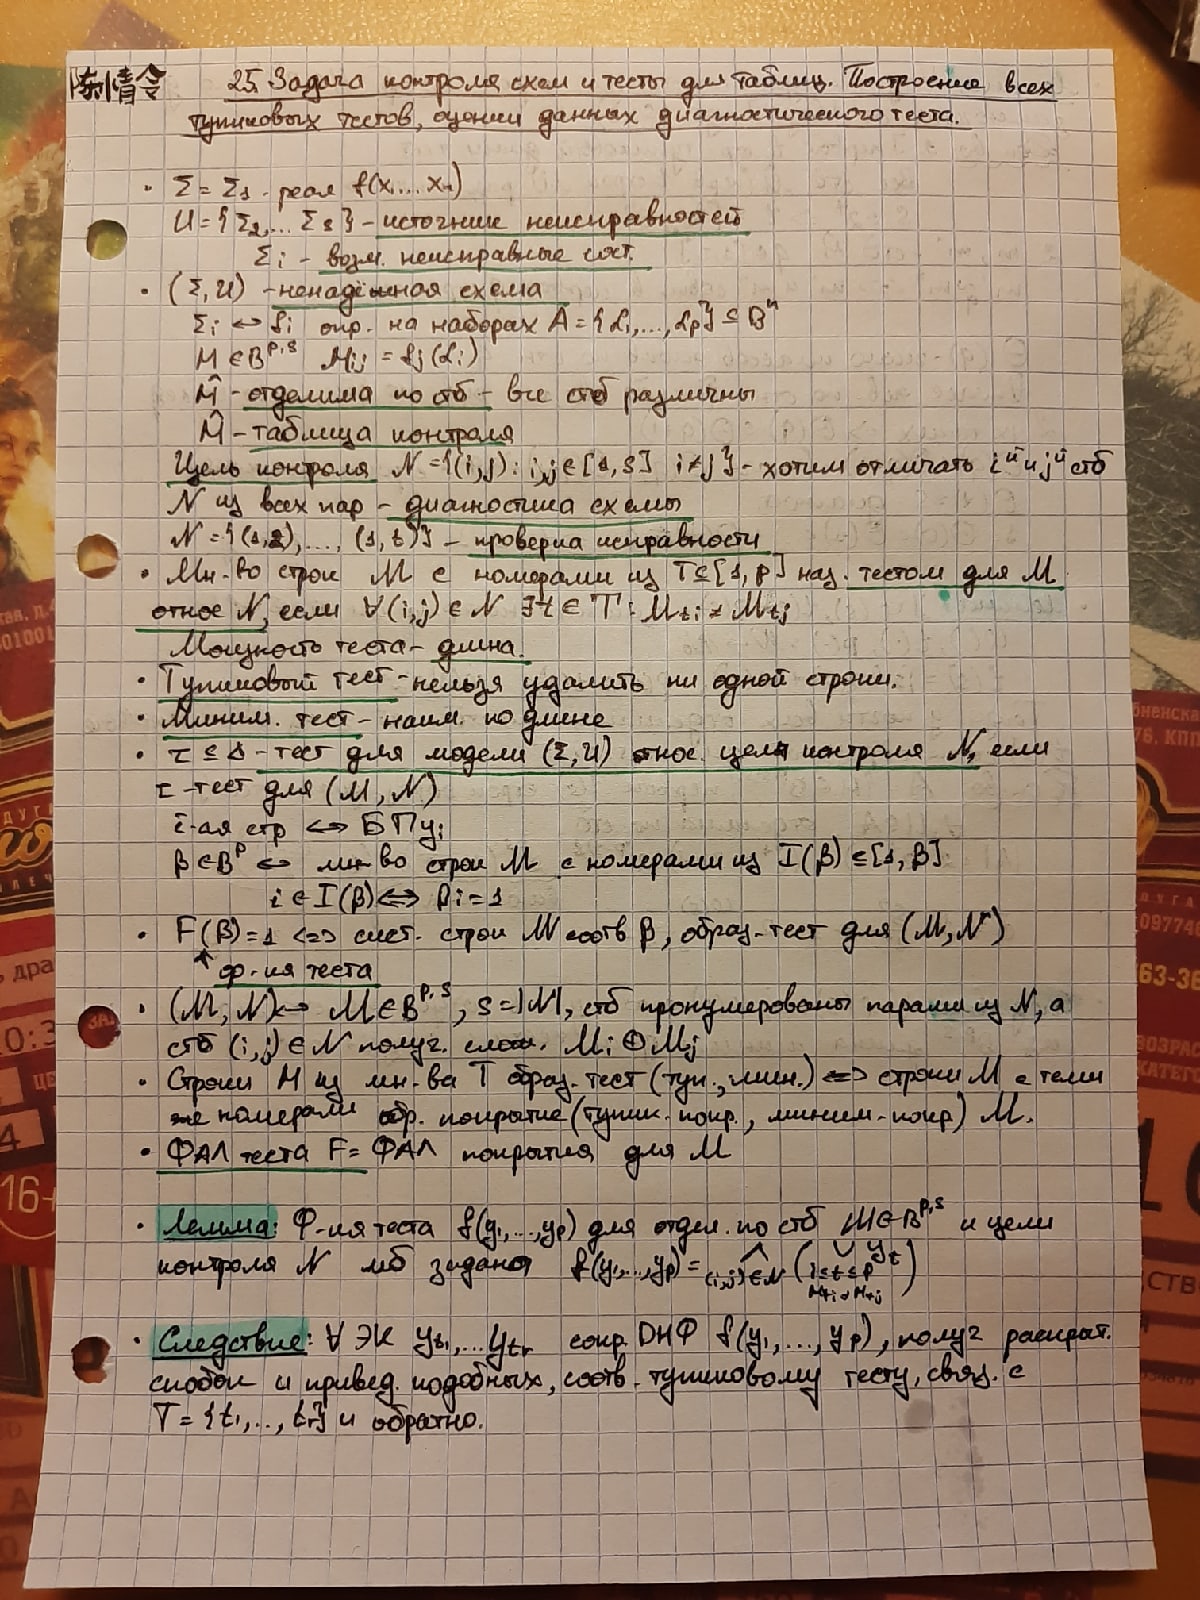 陈情令 25. Задача контроля схем и тесты для таблиц. Построение всех
тупиковых тестов, оценки данных диагностического теста.
· Σ = Σ₁ - реал f(x₁...xₙ)
U = {Σ₂,... Σₛ} - источник неисправностей
Σi - возм. неисправные сост.
· (Σ, U) - ненадёжная схема
Σi ↔ fi опр. на наборах A = {α₁,...,αp} ⊆ Bⁿ
M ∈ B^{p,s} Mij = fj(αi)
M̂ - отделима по стб - все стб различны
M̂ - таблица контроля
Цель контроля N = {(i,j): i,j ∈ [1,s] i≠j} - хотим отличать iй и jй стб
N из всех пар - диагностика схемы
N = {(1,2),..., (1,t)} - проверка исправности
· Мн-во строк M с номерами из T ⊆ [1,p] наз. тестом для M
относ N, если ∀(i,j) ∈ N ∃t ∈ T: Mti ≠ Mtj
Мощность теста - длина.
· Тупиковый тест - нельзя удалить ни одной строки.
· Миним. тест - наим. по длине
· τ ⊆ A - тест для модели (Σ, U) относ. цели контроля N, если
τ - тест для (M, N)
i-ая стр ↔ БП yi
β ∈ B^p ↔ мн-во строк M с номерами из I(β) ⊆ [1, β]
i ∈ I(β) ⟺ βi = 1
· F(β) = 1 ⟺ сист. строк M соотв β, образ. тест для (M, N)
↑ ф-ия теста
· (M, N) ↔ M ∈ B^{p,s}, s = |N|, стб пронумерованы парами из N, а
стб (i,j) ∈ N получ. слож. Mi ⊕ Mj
· Строки M из мн-ва T образ. тест (туп., мин.) ⟺ строки M с теми
же номерами обр. покрытие (тупик. покр., миним. покр) M.
· ФАЛ теста F = ФАЛ покрытия для M
· Лемма: Ф-ия теста f(y₁,...,yp) для отдел. по стб M ∈ B^{p,s} и цели
контроля N мб задана f(y₁,...,yp) = ⋀_{(i,j)∈N} (⋁_{1≤t≤p, Mti≠Mtj} yt)
· Следствие: ∀ ЭК yt₁,...ytr сокр. ДНФ f(y₁,...,yp), получ раскрыт.
скобок и привед. подобных, соотв. тупиковому тесту, связ. с
T = {t₁,..., tr} и обратно.